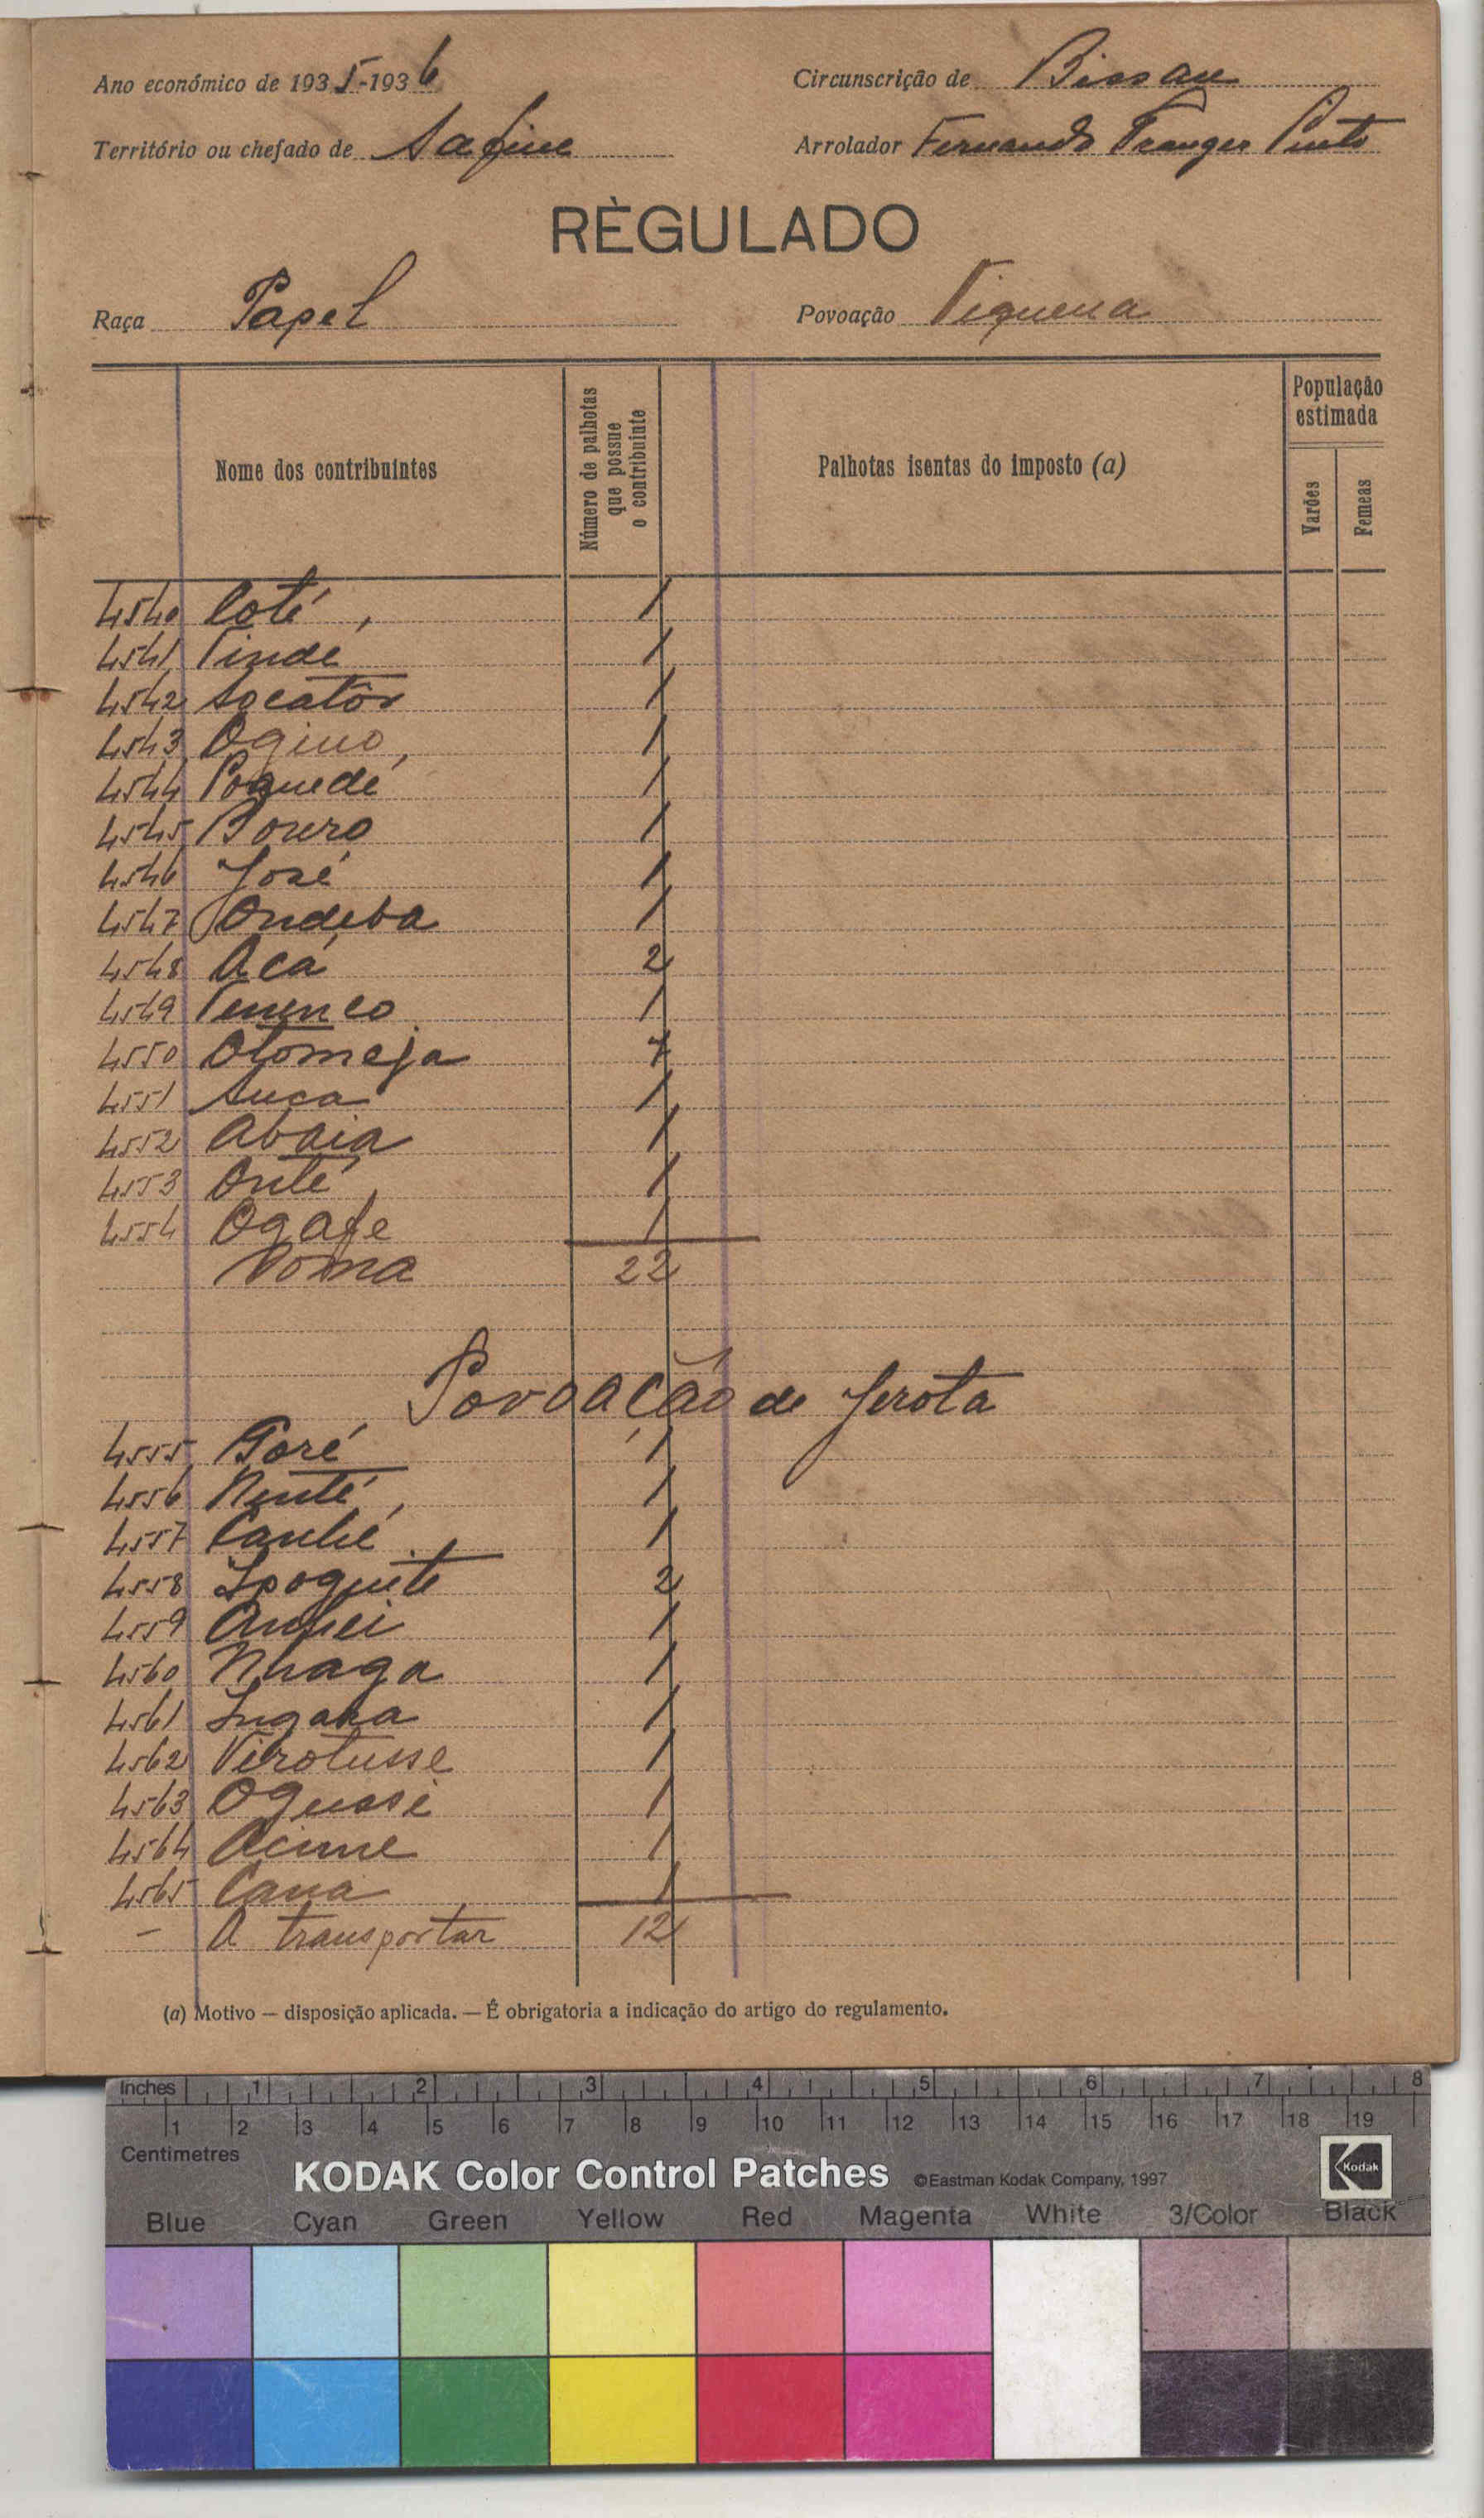 Ano económico de 1935-1936
Circunscrição de Bissau
Território ou chefado de Safine
Arrolador Fernando Pinto
RÈGULADO
Raça Papel
Povoação
Nome dos contribuintes
Número de palhotas que possue o contribuinte
Palhotas isentas do imposto (a)
População estimada
Varões
Femeas
4540 Coté 1
4541 1
4542 Socatôr 1
4543 Ogino 1
4544 Poquedé 1
4545 Bouro 1
4546 José 1
4547 Ondeba 1
4548 Acá 2
4549 1
4550 Otomeja 7
4551 Suca 1
4552 Abaia 1
4553 Onté 1
4554 Ogafe 1
Soma 22
Povoação de Jerota
4555 Toré 1
4556 Nenté 1
4557 Canhé 1
4558 Ipoquite 2
4559 1
4560 Nhaga 1
4561 Ingana 1
4562 Virotusse 1
4563 Ogussi 1
4564 Acime 1
4565 Cana 1
- A transportar 12
(a) Motivo — disposição aplicada. — É obrigatoria a indicação do artigo do regulamento.
Inches 1 2 3 4 5 6 7 8
1 2 3 4 5 6 7 8 9 10 11 12 13 14 15 16 17 18 19
Centimetres
KODAK Color Control Patches ©Eastman Kodak Company, 1997 Kodak
Blue Cyan Green Yellow Red Magenta White 3/Color Black